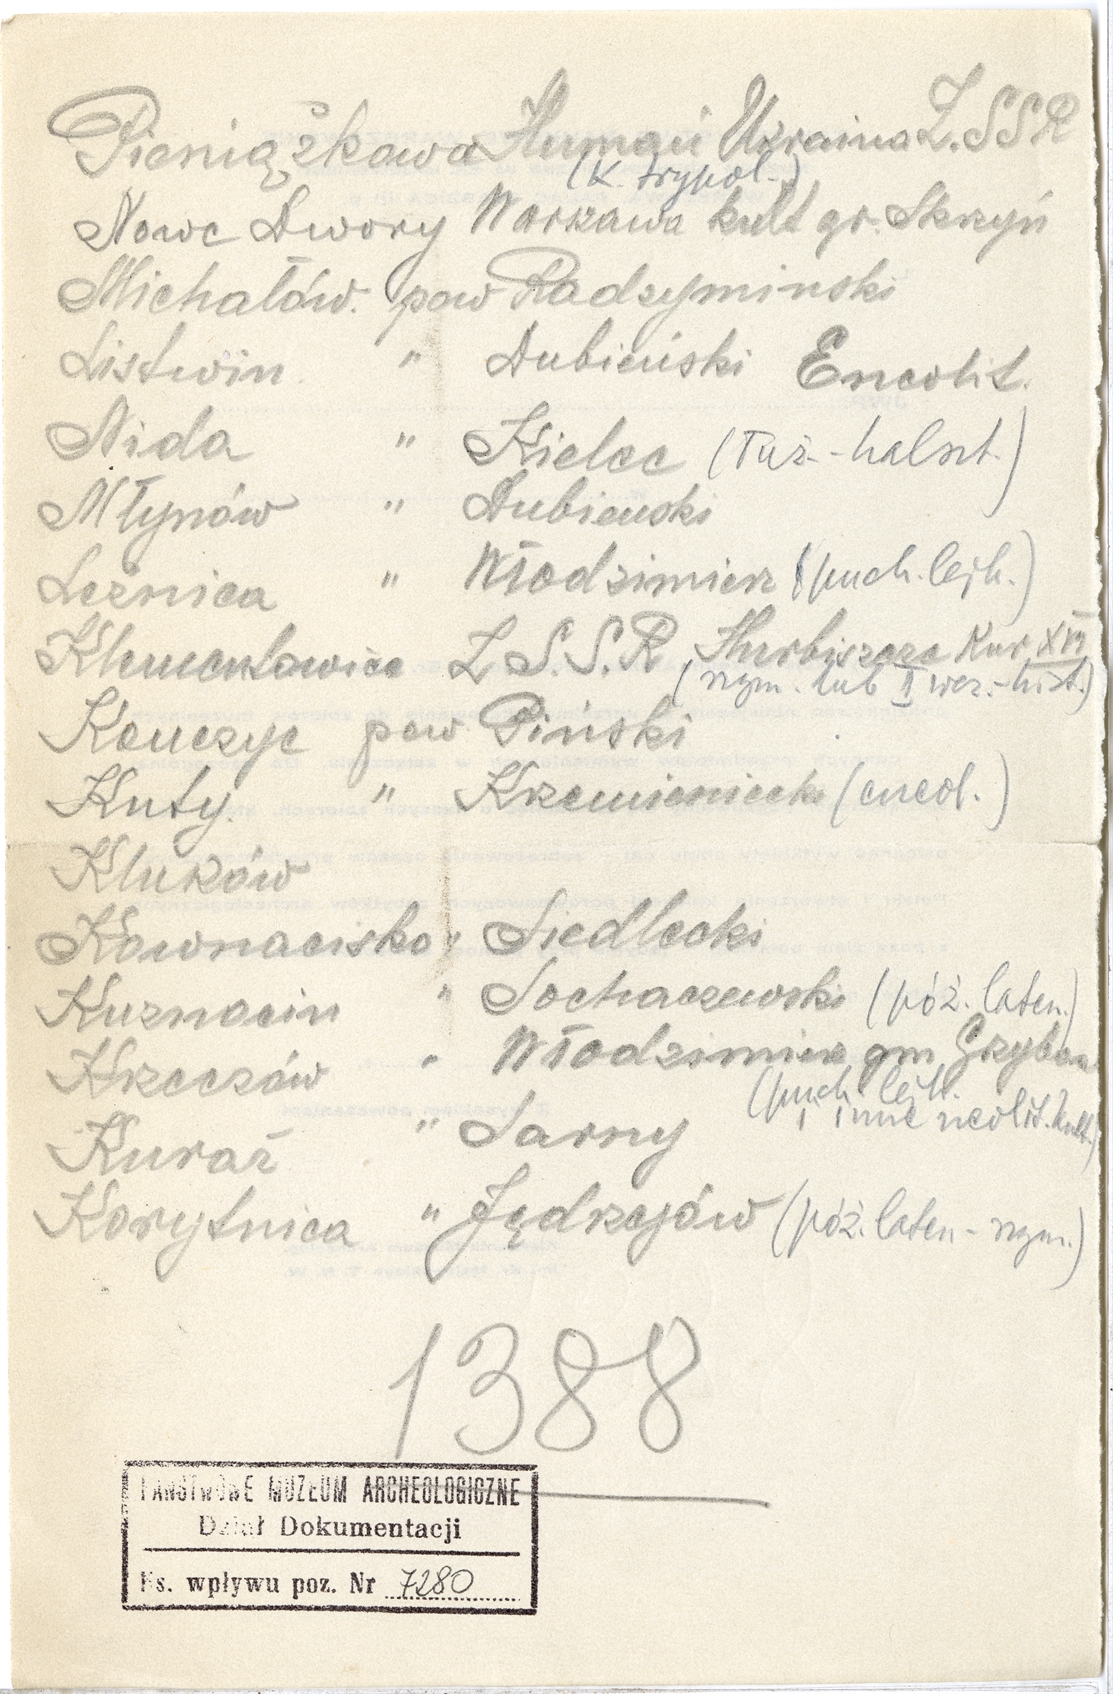 Pieniążkowa Humań Ukraina Z.SSR
(K. trypol.)
Nowe Dwory Warkawa kult gr. Skrzyń
Michałów. pow Radzymiński
Listwin " Dubieński Eneolit.
Nida " Kielce (łuż.-halszt.)
Młynów " Dubieński
Leżnica " Włodzimierz (puch. lejk.)
Z.S.S.R Kur XVI
(rzym. lub II wcz.-hist.)
Kończyc pow. Piński
Kuty. " Krzemieniecki (eneol.)
Kluków
Kownacisko " Siedlecki
Kuznocin " Sochaczewski (póź. laten.)
Krzeczów " Włodzimierz gm Grzybow
(puch. lejk.
i inne neolit. kult.)
Kuraż " Sarny
Korytnica " Jędrzejów (póź. laten - rzym.)
1388
PAŃSTWOWE MUZEUM ARCHEOLOGICZNE
Dział Dokumentacji
Ks. wpływu poz. Nr 7280